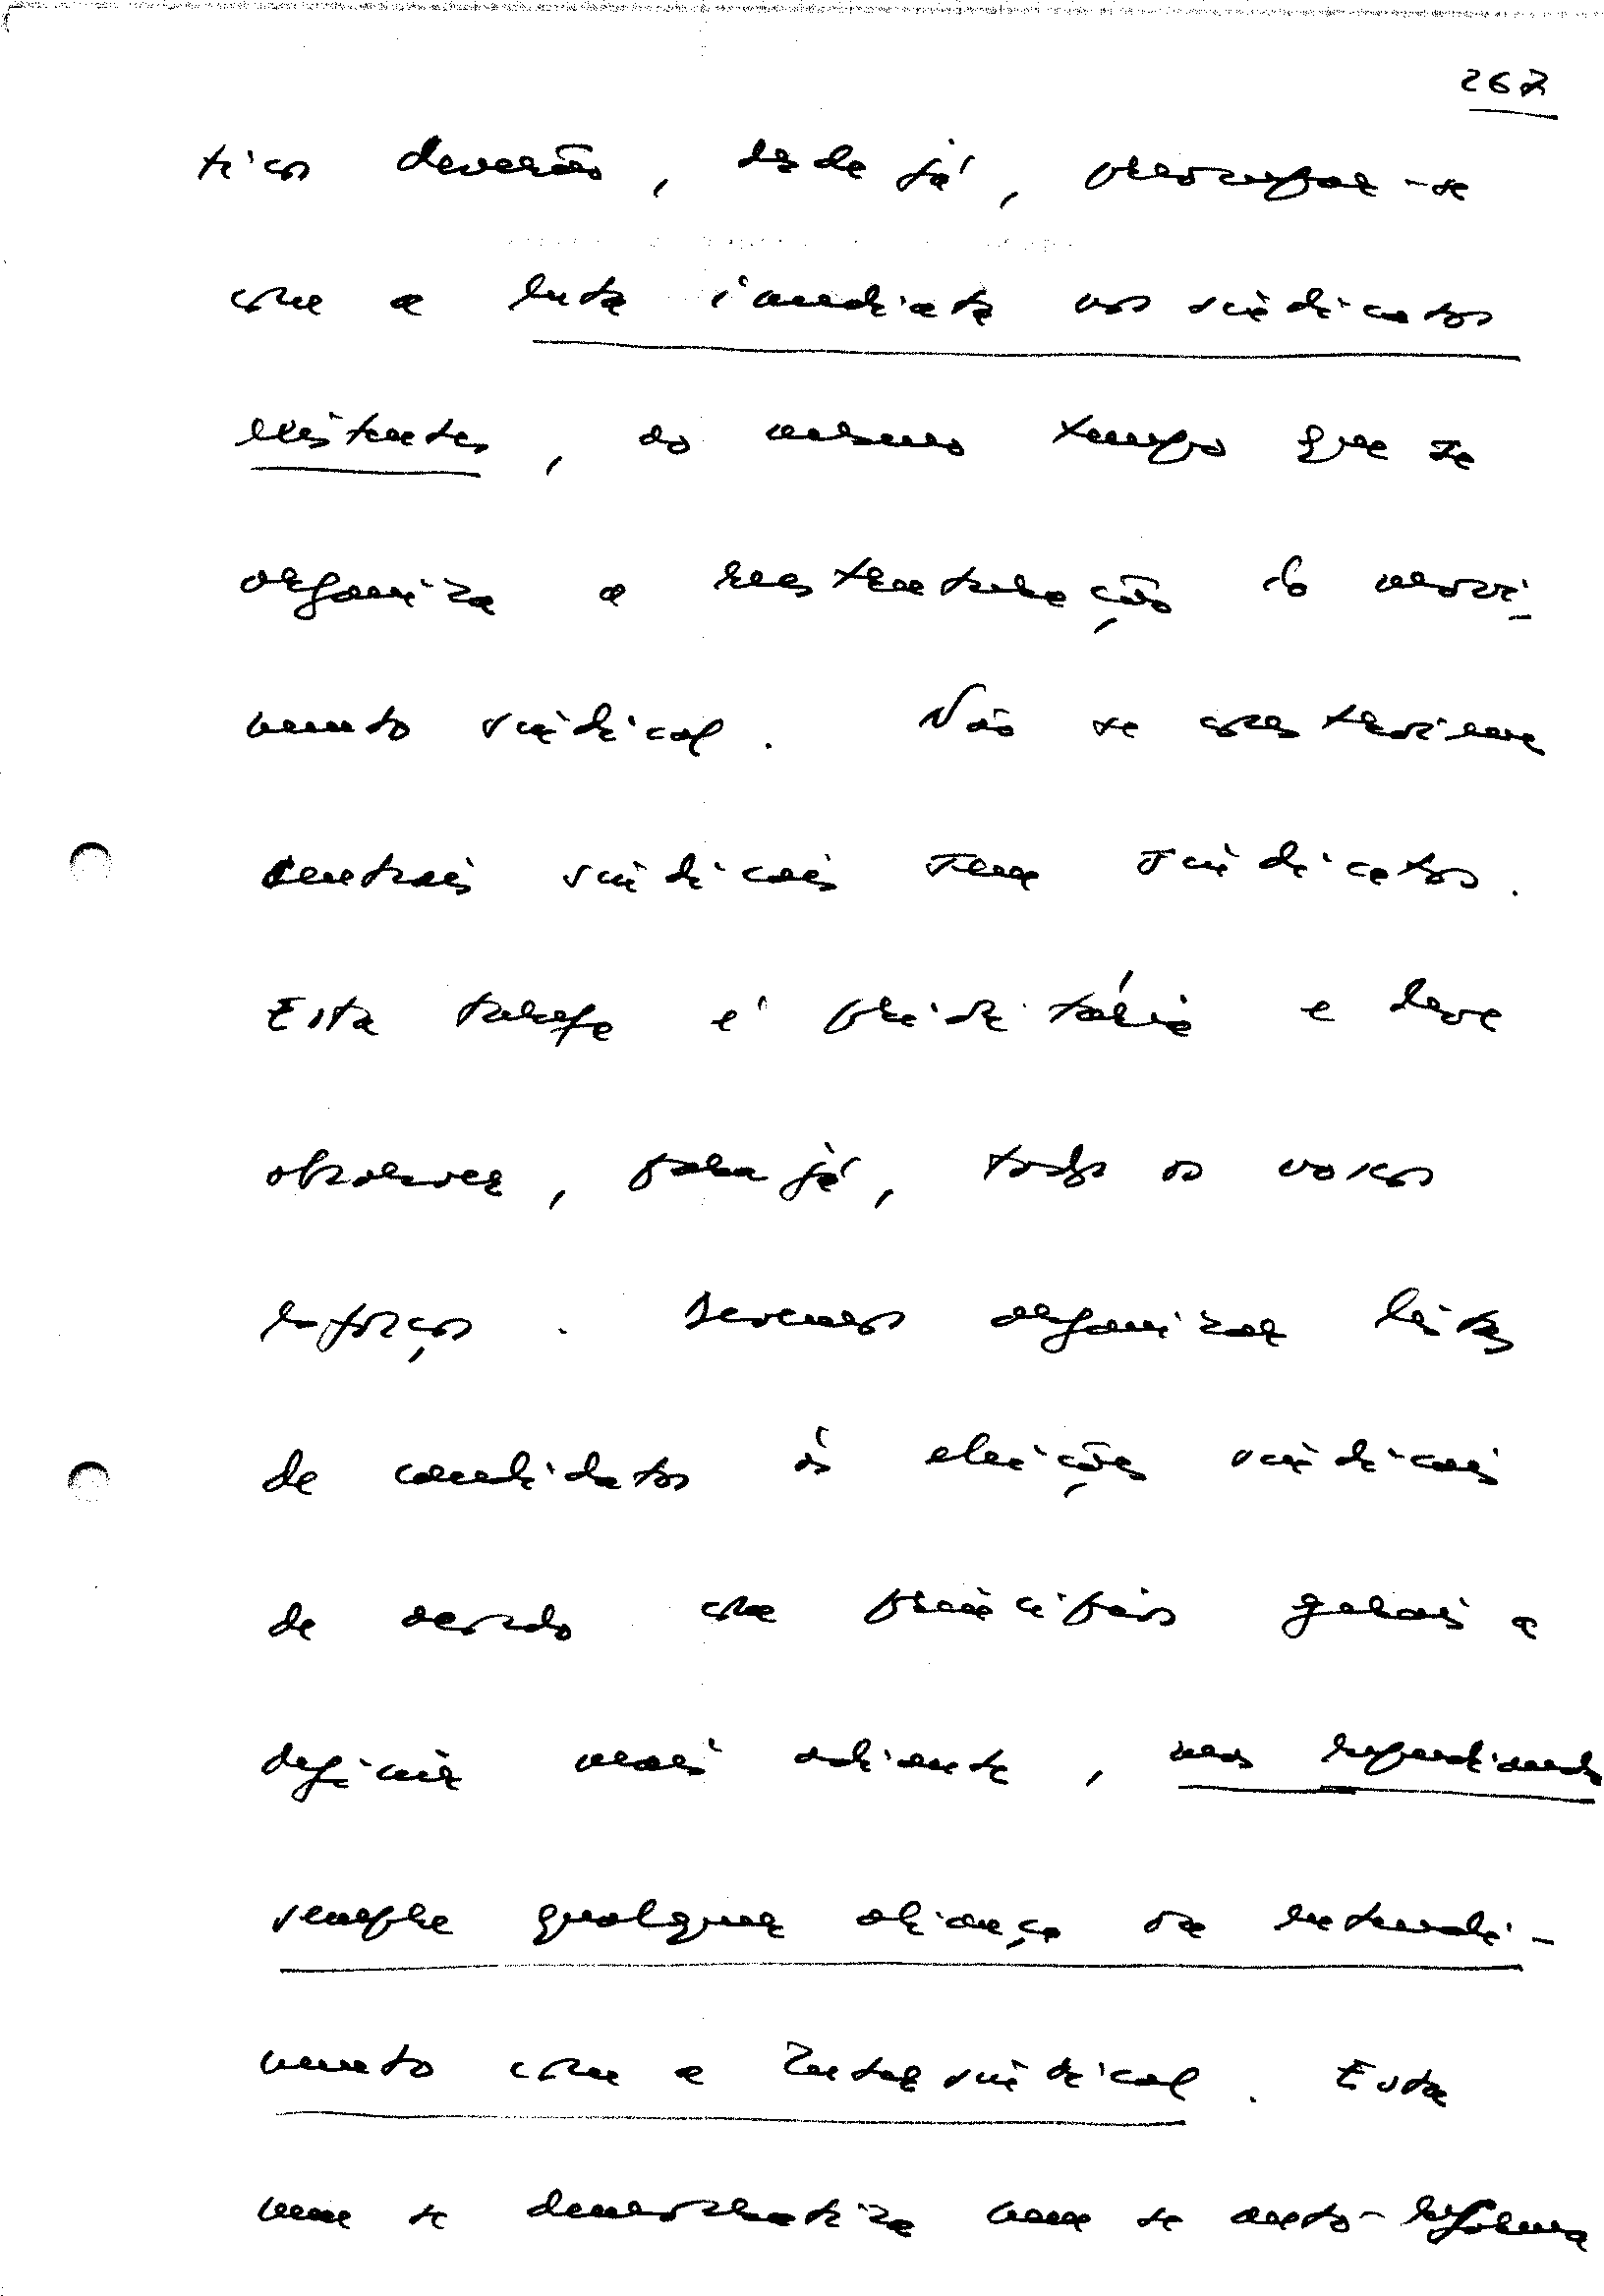 262
ticos deverão, desde já, preocupar-se
com a luta imediata nos sindicatos
existentes, ao mesmo tempo que se
organiza a reestruturação do movi-
mento sindical. Não se constroem
centrais sindicais sem sindicatos.
Esta tarefa é prioritária e deve
absorver, para já, todos os nossos
esforços. Devemos organizar listas
de candidatos às eleições sindicais
de acordo com princípios gerais a
definir mais adiante, mas repudiando
sempre qualquer aliança ou entendi-
mento com a Intersindical. Esta
nem se democratiza nem se auto-reforma